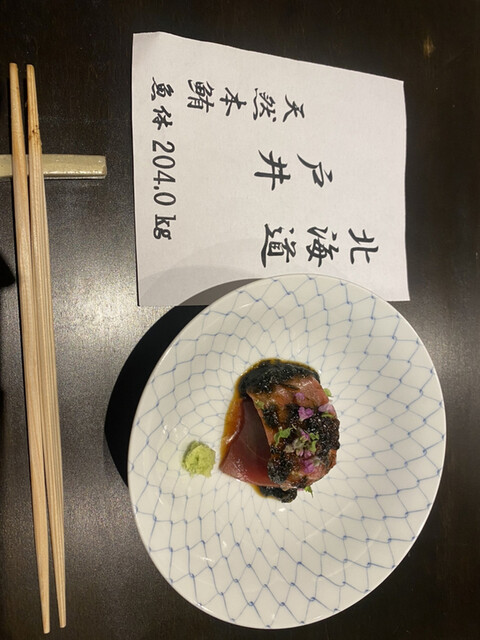 北海道
戸井
天然本鮪
魚体 204.0 kg